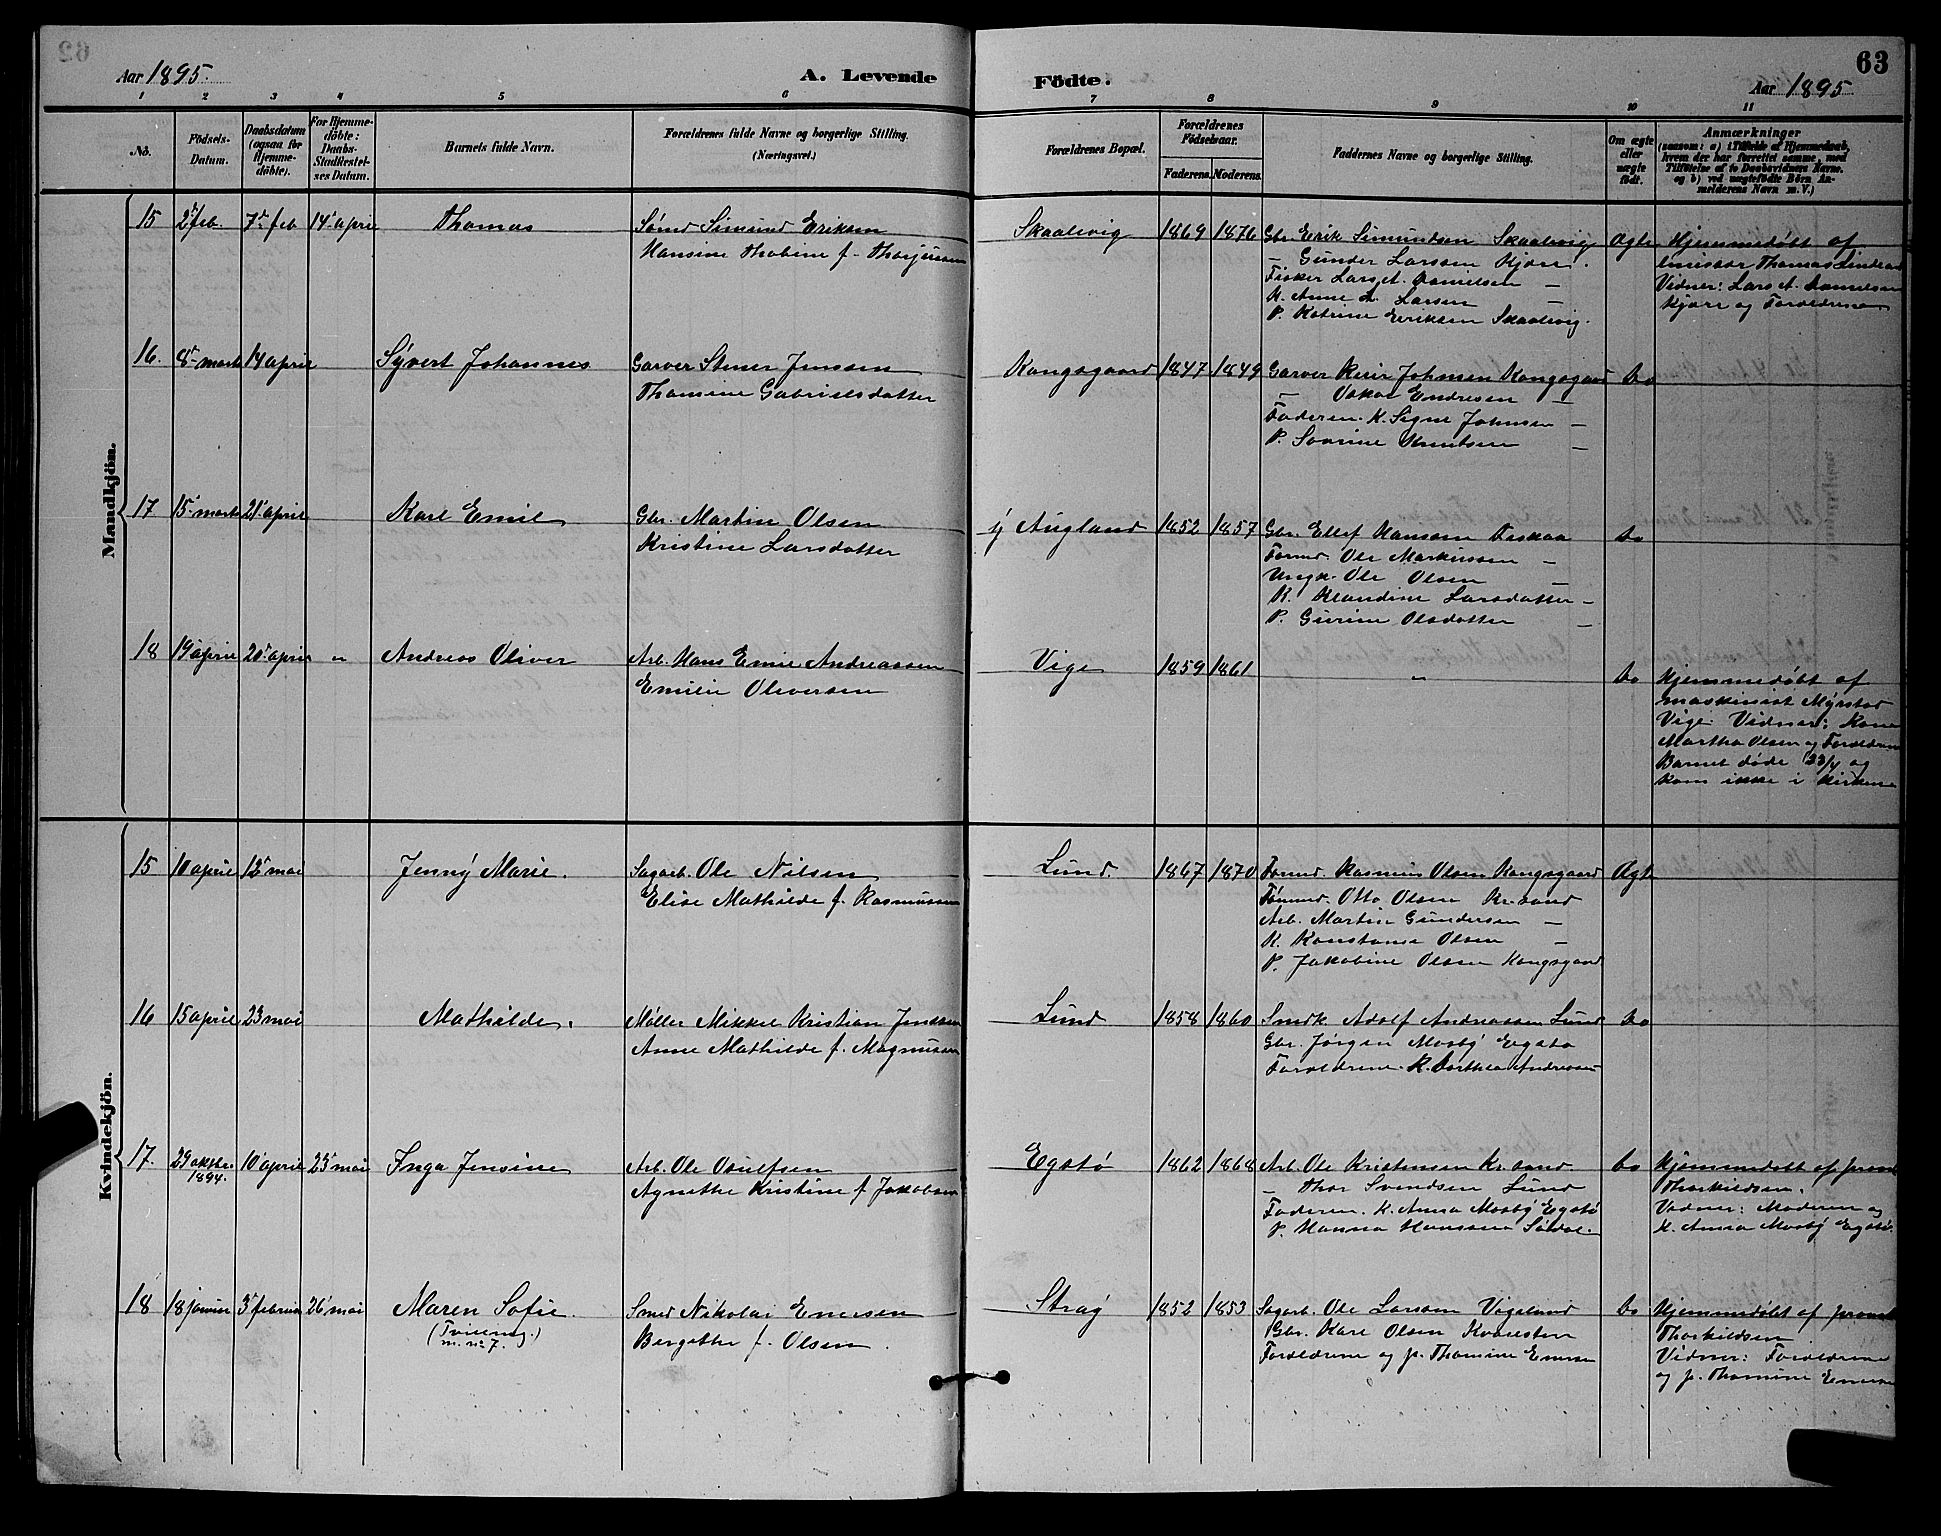 62
Aar 1895.
A. Levende
Födte.
63
Aar 1895
1 2 3 4 5 6 7 8 9 10 11
No.
Födsels-Datum.
Daabsdatum (ogsaa for Hjemmedöbte).
For Hjemmedöbte: Daabs-Stadfestelses Datum.
Barnets fulde Navn.
Forældrenes fulde Navne og borgerlige Stilling.
(Næringsvei.)
Forældrenes Bopæl.
Forældrenes Födselsaar.
Faderens. Moderens.
Faddernes Navne og borgerlige Stilling.
Om ægte eller uægte födt.
Anmærkninger
(saasom: a) i Tilfælde af Hjemmedaab, hvem der har forrettet samme, med Tilföielse af to Daabsvidners Navne, og b) ved uægtefödte Börn Anmelderens Navn m. V.)
Mandkjön.
15 2 feb. 7 feb 14 april Thomas
Sömd Simund Eriksen
Hansine Thobine f. Thorjussen
Skaalevig 1869 1876
Gbr. Erik Simundsen Skaalevig
— Gunder Larssen Kjære.
Fisker Lars A. Danielsen —
K. Anne L. Larsen —
P. Katrine Eriksen Skaalevig.
Ægte
Hjemmedöbt af
Thomas
Vidner: Lars A. Danielsen
Kjære og Forældrene
16. 8 marts 14 april Syvert Johannes
Garver Stener Jensen
Thomine Gabrielsdatter
Kongsgaard 1847 1849
Garver Reier Johnsen Kongsgaard
— Oskar Endresen —
Faderen. K. Signe Johnsen —
P. Severine Knutsen —
do
17 15 marts 21 april Karl Emil
Gbr. Martin Olsen
Kristine Larsdatter
y Augland 1852 1857
Gbr. Ellef Hansen
Tømd. Ole Markussen —
Ungk. Ole Olsen —
K. Klaudine Larsdatter —
P. Gurine Olsdatter —
do
18 19 april 20 april " Andreas Oliver
Arb. Hans Emil Andreassen
Emilie Oliversen
Vige 1859 1861
"
do
Hjemmedöbt af
maskinist Myrstad
Vige. Vidner: Kone
Martha Olsen og Forældrene
Barnet døde 23/4 og
kom ikke i Kirken
Kvindekjön.
15 10 april 12 mai Jenny Marie.
Sagarb. Ole Nilsen
Elise Mathilde f. Rasmussen
Lund 1867 1870
Tømd. Rasmus Olsen Kongsgaard
Tømmd. Otto Olsen Kr.sand
Arb. Martin Gundersen —
K. Konstanse Olsen —
P. Jakobine Olsen Kongsgaard
Ægt
16 15 april 23 mai Mathilde.
Møller Mikkel Kristian Jensen
Anne Mathilde f. Magnussen
Lund 1858 1860
Smdk. Adolf Andreassen Lund
Gbr. Jørgen Mosby Egstø
Forældrene. K. Dorthea Andreassen
do
17. 29 oktbr. 1894. 10 april 23 mai Inga Jensine
Arb. Ole Osulfsen
Agnethe Kristine f. Jakobsen
Egstø 1862 1868
Arb. Ole Kristensen Kr.sand
— Thor Svendsen Lund
Faderen. K. Anna Mosby Egstø
P. Hanna Hanssen Sødal.
do
Hjemmedöbt af provst
Thorkildsen.
Vidner: Moderen og
K. Anna Mosby Egstø.
18 18 januar 3 februar 26 mai Maren Sofie.
(Tvilling.)
m. no 7.
Smed Nikolai Emersen
Bergithe f. Olsen.
Stray 1852 1853
Sagarb. Ole Larsen Vigeland
Gbr. Karl Olsen
Forældrene og p. Thomine Emersen
do
Hjemmedöbt af provst
Thorkildsen
Vidner: Forældrene
og p. Thomine Emersen